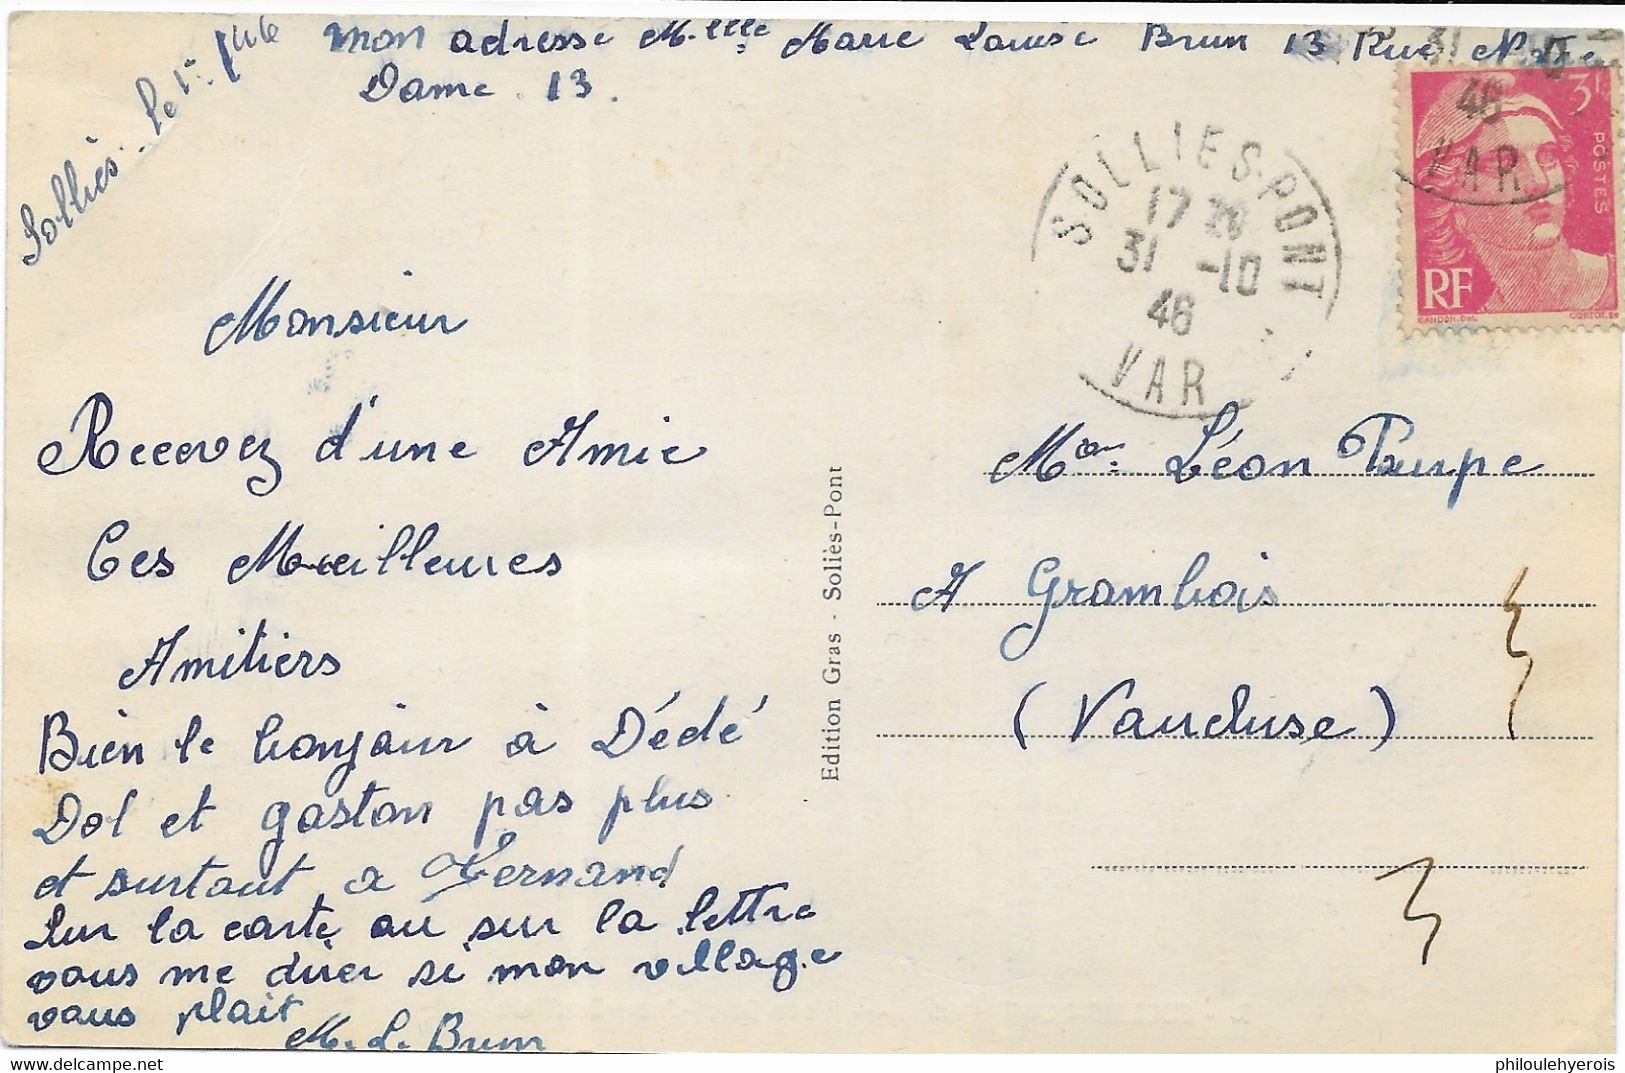 mon adresse M.elle Marie Louise Brun 13 Rue Notre
Dame. 13.
Solliès. le 1er
Monsieur
Recevez d'une Amie
Ces Meilleures
Amitiers
Bien le bonjour à Dédé
Dol et gaston pas plus
et surtout a Fernand
Sur la carte ou sur la lettre
vous me direr si mon village
vous plait
M. L. Brun
Edition Gras - Soliès-Pont
SOLLIES-PONT
17 20
31 -10
46
VAR
31
46
VAR
3F
POSTES
RF
GANDON.Del.
CORTOT.sc
Mon. Léon Paupe
A Grambois
(Vaucluse)
philoulehyerois